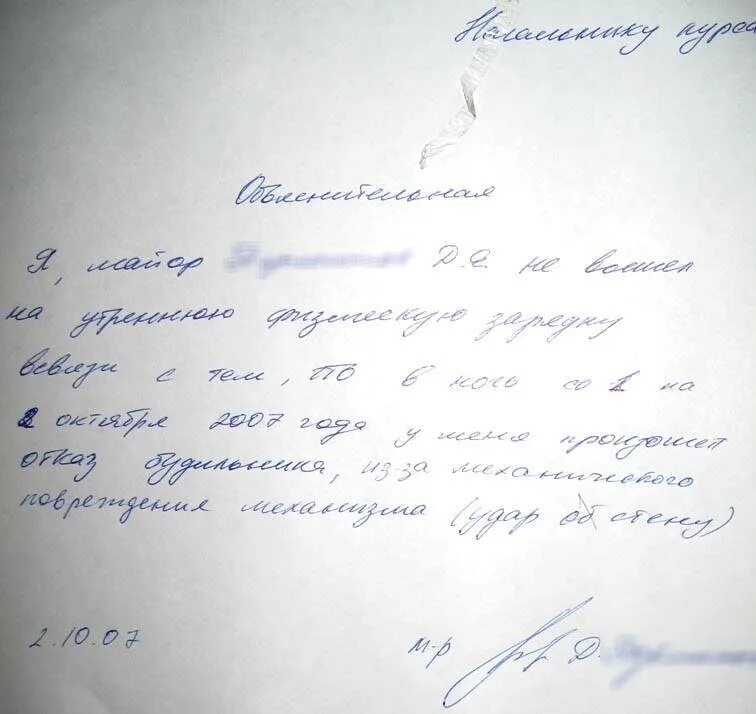 Начальнику курса
Объяснительная
Я, майор Д.С. не вошел
на утреннюю физическую зарядку
всвязи с тем, то в ночь со 1 на
2 октября 2007 года у меня произошел
отказ будильника, из-за механического
повреждения механизма (удар об стену)
2.10.07 м-р Д.